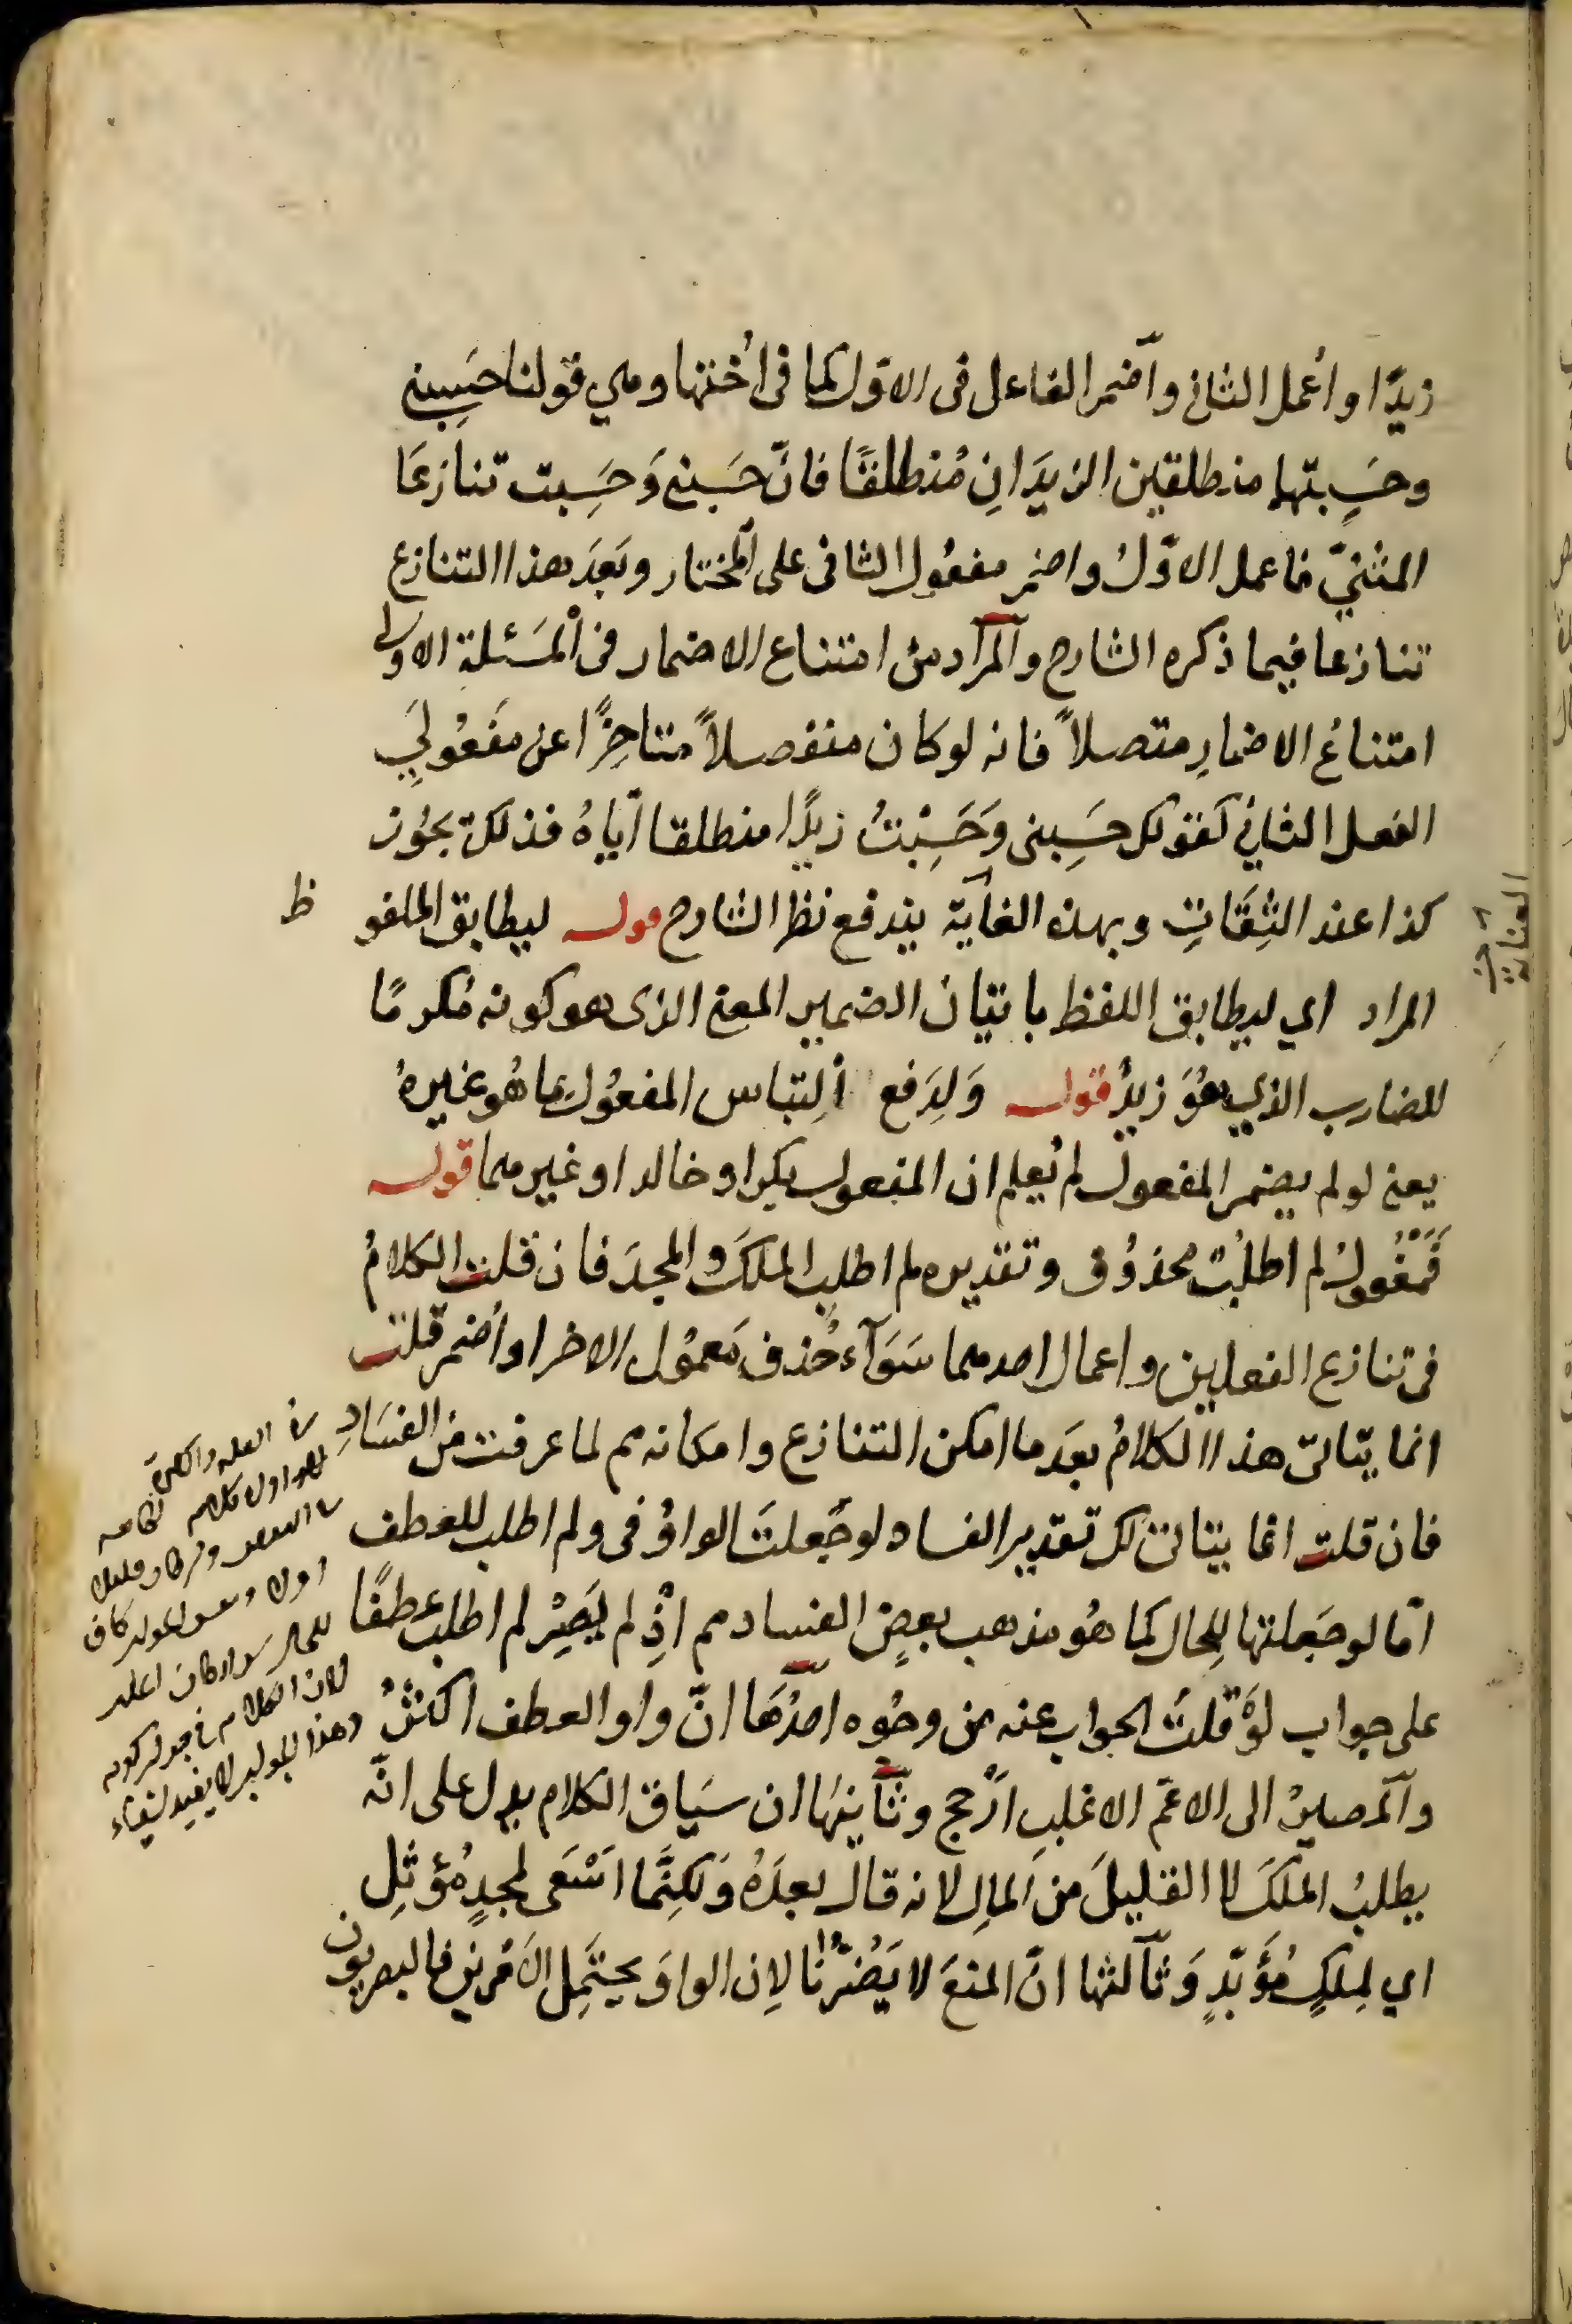 زيدًا واُعمل الثانى وآضمر الفاعل فى الاوّل كما فى اُختها وهي قولنا حَسِبنى
وحَسِبتهما منطلقين الزيدَانِ مُنطلقًا فانّ حَسبنى وَحَسِبت تنازعَا
المثنيّ فاعمل الاوّلُ واضمر مفعُول الثانى على المختار وبَعدَ هذا التنازع
تنازعا فيما ذكره الشارح والمراد من امتناع الاضمار فى المَسْئلة الاولى
امتناعُ الاضمارِ متصلاً فانه لو كان منفصلاً متاخِرًا عن مَفعُوليَ
الفعل الثانى كقولك حَسِبنى وَحَسِبْتُ زيدًا منطلقا اياهُ فذلك يجُوز
كذا عند الثِقَاتِ وبهذه الغاية يندفع نظر الشارح قوله ليطابق الملفو ظ
المراد اي ليطابق اللفظ باتيان الضمير المعنى الذى هو كونه مُكرمًا
للضارب الذي هُوَ زيدٌ قوله وَلِدَفع اُلِتباس المفعُول بما هُو غيرهُ
يعنى لو لم يضمر المفعول لم يُعلم ان المفعول بكر او خالد او غيرهما قوله
فَمَفْعُولُ لم اطلُبْ محذوُف وتقديره لم اطلب الملكَ والمجدَ فان قلت الكلامُ
فى تنازع الفعلين واعمال احدهما سَوَآء حُذف مَعموُل الاخر او اُضمر قلت
انما يتاتى هذا الكلامُ بعَد ما امكن التنازع وامكانه مم لما عرفت من الفسَادِ
فان قلت انما يتاتى لك تقدير الفساد لو جَعلتَ الواوُ فى ولم اطلب للعطف
امّا لو جَعلتها لِلحال كما هُو مذهب بعضٍ الفساد مم اذِ لم يَصِرْ لم اطلب عطفًا
على جواب لَوْ قلتُ الجواب عنه من وجُوه احدُهَا انّ واو العطف اكثرُ
وآلمصيرُ الى الاعمّ الاغلبِ ارْجح وثاَنيهَا ان سيَاق الكلام يدل على انّه
يطلبُ الملكَ لا القليلَ من المالِ لانه قال بعدَهُ وَلكِنَّما اَسْعَى لمجدٍ مُؤثّلِ
اي لمِلكٍ مُؤَبّدٍ وَثآلثها انّ المنعَ لا يَضُرُّنا لاِن الواوَ يحتَمِل الاَمرين فالبصريون